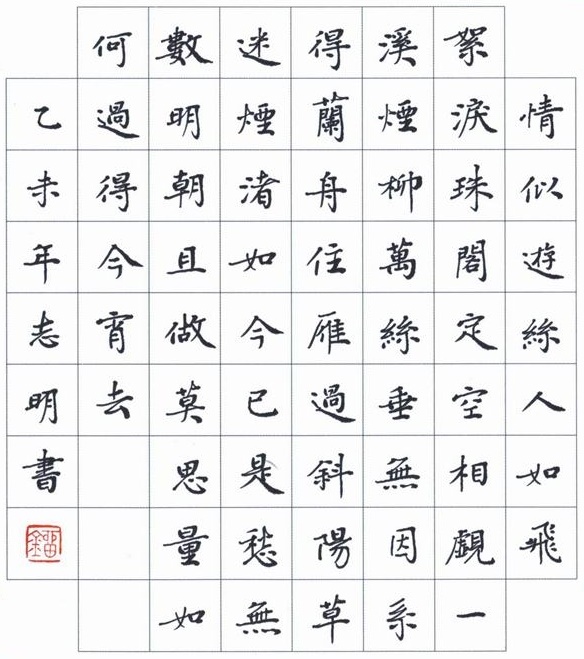 情似遊絲人如飛
絮淚珠閣定空相覷一
溪煙柳萬絲垂無因系
得蘭舟住雁過斜陽草
迷煙渚如今已是愁無
數明朝且做莫思量如
何過得今宵去
乙未年志明書